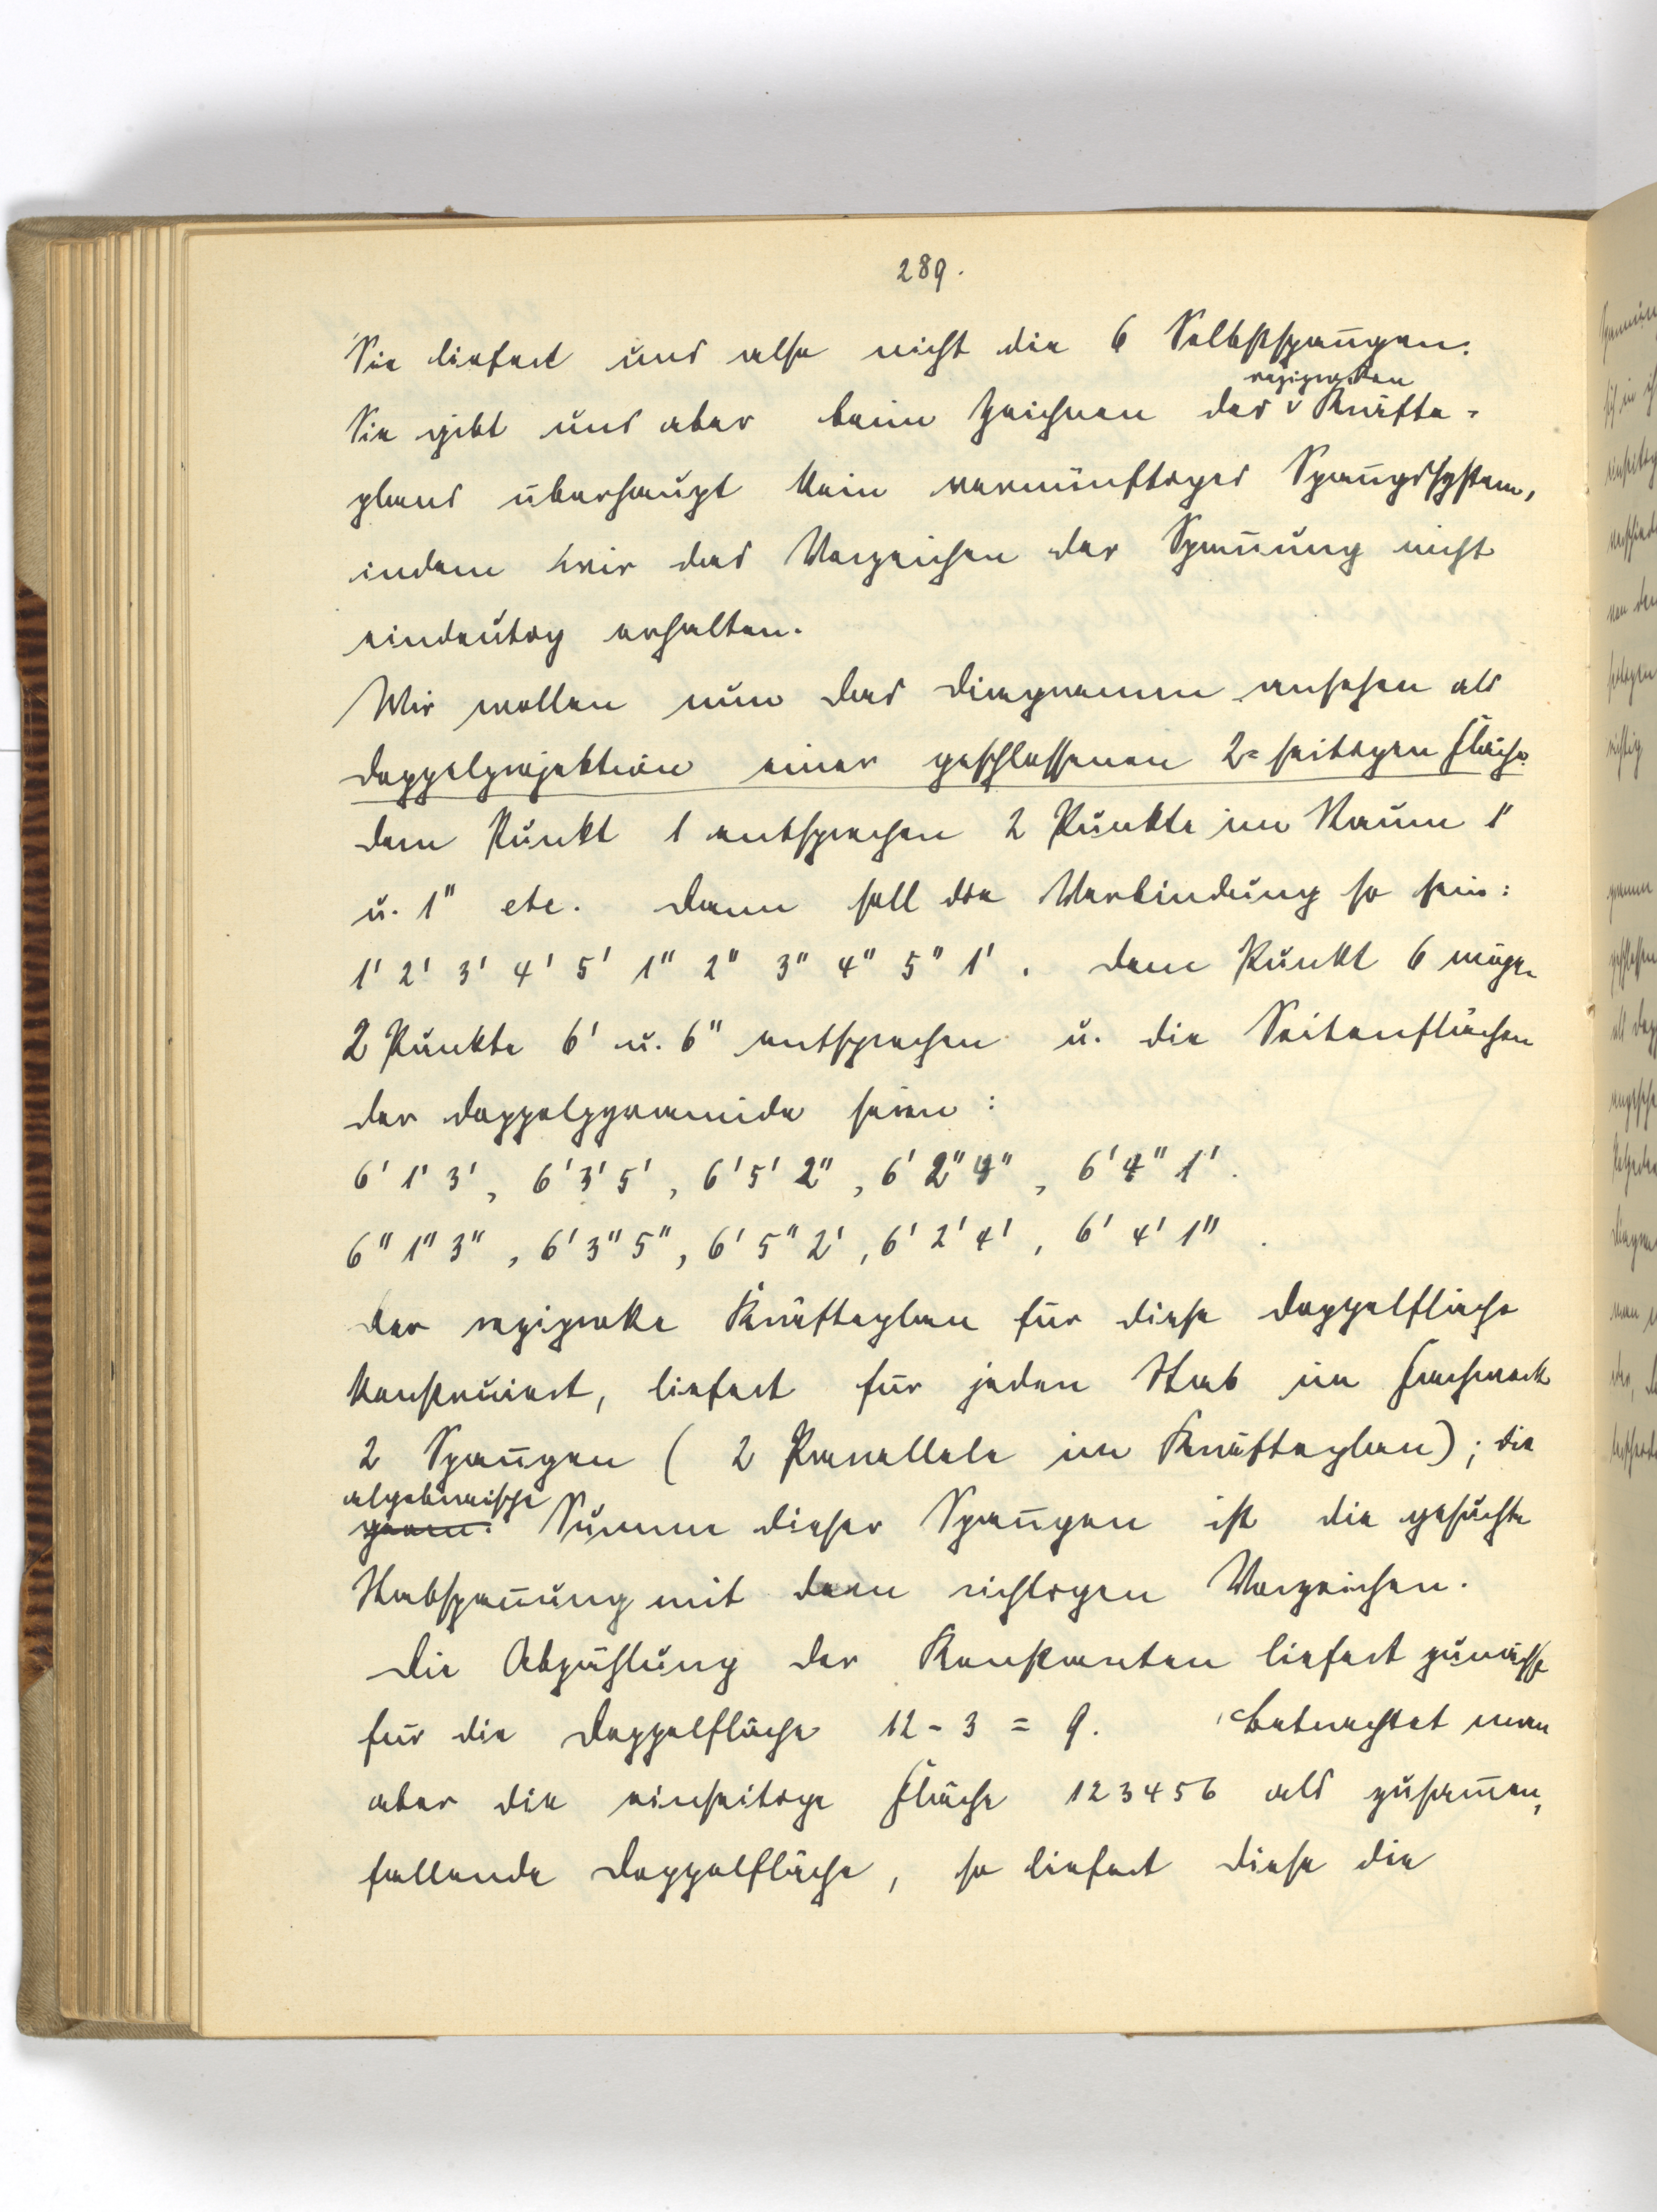 289.
Sie liefert uns also nicht die 6 Selbstspañgen.
reziproken
Sie gibt uns aber beim Zeichnen des v Kräfte=
plans überhaupt kein vernünftiges Spañgssystem,
indem wir das Vorzeichen der Spañung nicht
eindeutig erhalten.
Wir wollen nun das Diagramm ansehen als
Doppelprojektion einer geschlossenen 2=seitigen Fläche.
Dem Punkt 1 entsprechen 2 Punkte im Raum 1'
u. 1" etc. Dann soll die Verbindung so sein:
1' 2' 3' 4' 5' 1" 2" 3" 4" 5" 1'. Dem Punkt 6 mögen
2 Punkte 6' u. 6" entsprechen u. die Seitenflächen
der Doppelpyramide seien:
6' 1' 3', 6' 3' 5', 6' 5' 2", 6' 2" 4", 6' 4" 1'.
6" 1" 3", 6' 3" 5", 6' 5" 2', 6' 2' 4', 6' 4' 1".
Der reziproke Kräfteplan für diese Doppelfläche
konstruiert, liefert für jeden Stab im Fachwerk
2 Spañgen ( 2 Parallele im Kräfteplan); die
algebraische
geom. Summe dieser Spañgen ist die gesuchte
Stabspañung mit dem richtigen Vorzeichen.
Die Abzählung der Konstanten liefert zunächst
für die Doppelfläche 12 - 3 = 9. Betrachtet man
aber die einseitige Fläche 123456 als zusam̄en,
fallende Doppelfläche, so liefert diese die